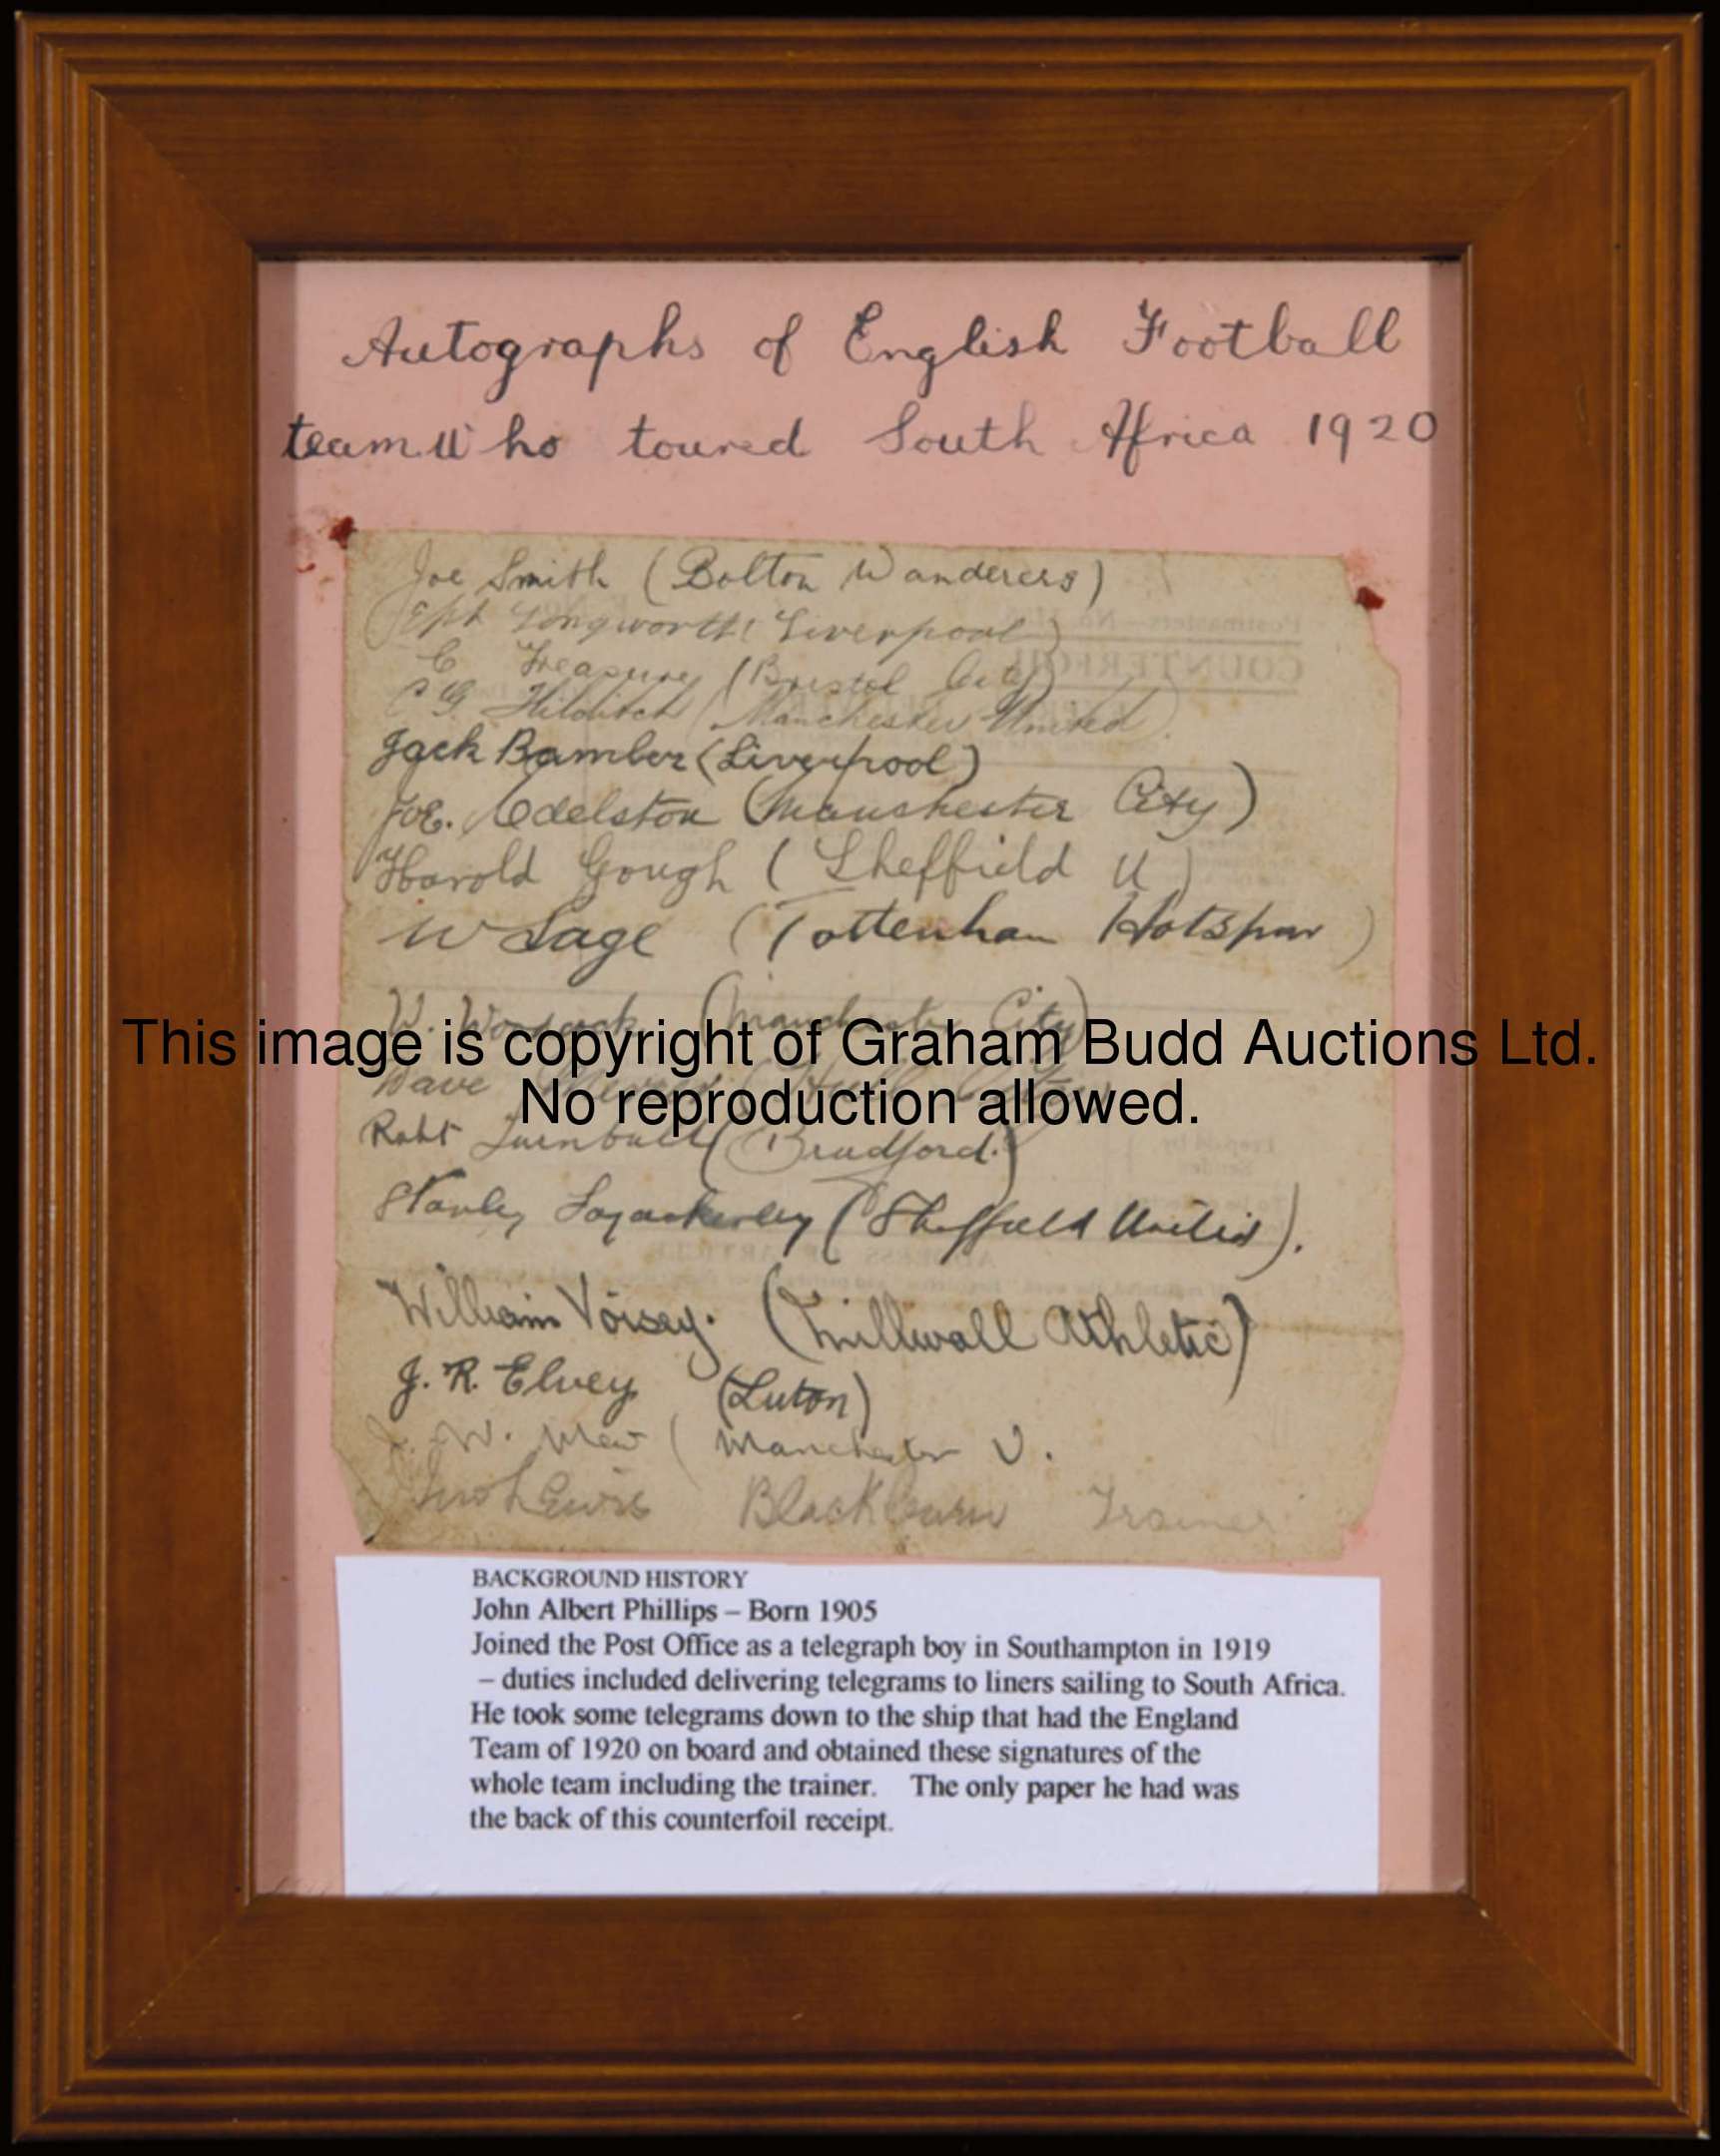 Autographs of English Football
team Who toured South Africa 1920
Joe Smith (Bolton Wanderers)
Eph Longworth (Liverpool)
C Treasure (Bristol City)
C G Hilditch (Manchester United)
Jack Bamber (Liverpool)
Joe. Edelston (Manchester City)
Harold Gough (Sheffield U)
W Sage (Tottenham Hotspur)
W. Woodcock (Manchester City)
This image is copyright of Graham Budd Auctions Ltd.
Dave Mercer (Hull City)
No reproduction allowed.
Robt Turnbull (Bradford.)
Stanley Fazackerley (Sheffield United).
William Voisey. (Millwall Athletic)
J. R. Elvey (Luton)
J. W. Mew (Manchester U.
Lewis Blackburn Trainer
Postmasters – No.
COUNTERFOIL
Prepaid by
Sender
ADDRESS OF ARTICLE
BACKGROUND HISTORY
John Albert Phillips – Born 1905
Joined the Post Office as a telegraph boy in Southampton in 1919
– duties included delivering telegrams to liners sailing to South Africa.
He took some telegrams down to the ship that had the England
Team of 1920 on board and obtained these signatures of the
whole team including the trainer. The only paper he had was
the back of this counterfoil receipt.